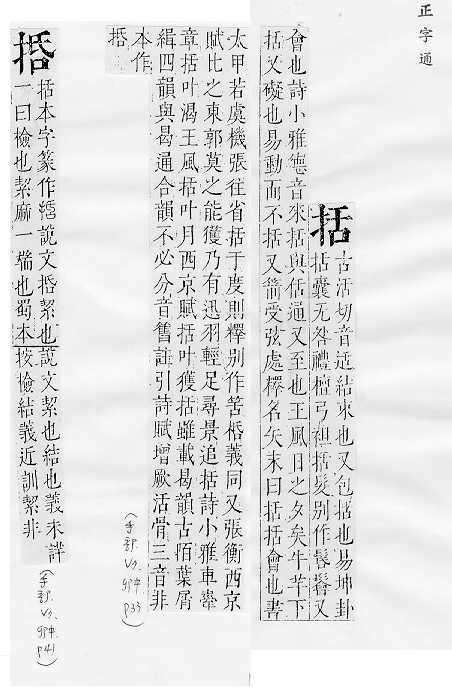 正字通
括
古活切音适結束也又包括也易坤卦
括囊无咎禮檀弓袒括髮別作髺鬠又
會也詩小雅德音來括與佸通又至也王風日之夕矣牛羊下
括又礙也易動而不括又箭受弦處檡名矢末曰括括會也書
太甲若虞機張往省括于度則釋別作筈桰義同又張衡西京
賦比之東郭莫之能獲乃有迅羽輕足尋景追括詩小雅車舝
章括叶渴王風括叶月西京賦括叶獲括雖載曷韻古陌葉屑
緝四韻與曷通合韻不必分音舊註引詩賦增厥活骨三音非
本作
𢬸
(手部 V3. 卯中 P33)
𢬸
括本字篆作𢬸說文𢬸絜也說文絜也結也義未詳
一曰檢也絜麻一耑也蜀本按檢結義近訓絜非
(手部 V3. 卯中 P41)